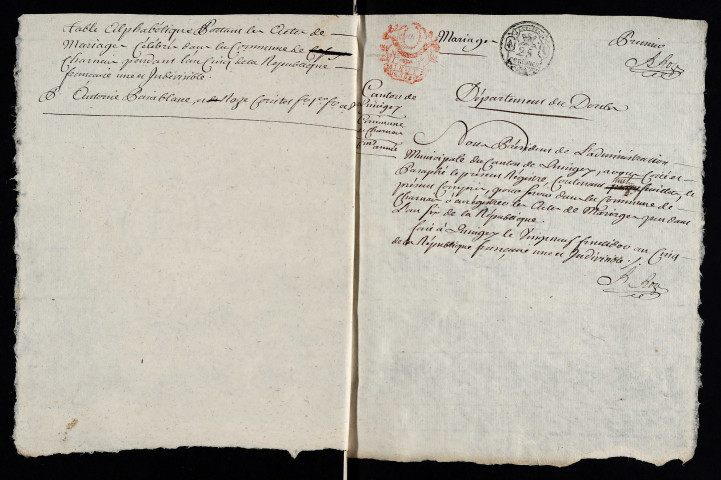 Table Alphabétique Portant les Actes de
Mariages Célébrés dans la Commune de
Charnay pendant l'an Cinq de la République
française une et Indivisible.
B Antoine
Mariage
Premier
Canton de
Quingey
Commune
de Charnay
Département du Doubs
Nous Président de L'administration
Municipale du Canton de Quingey, avons Cotté et
Paraphé le présent Registre, Contenant huit feuillets, le
présent Compris, pour servir dans la Commune de
Charnay à enregistrer les Actes de Mariages pendant
L'an six de la République.
fait à Quingey le Vingt neuf fructidor an Cinq
de la République française une et Indivisible ./.